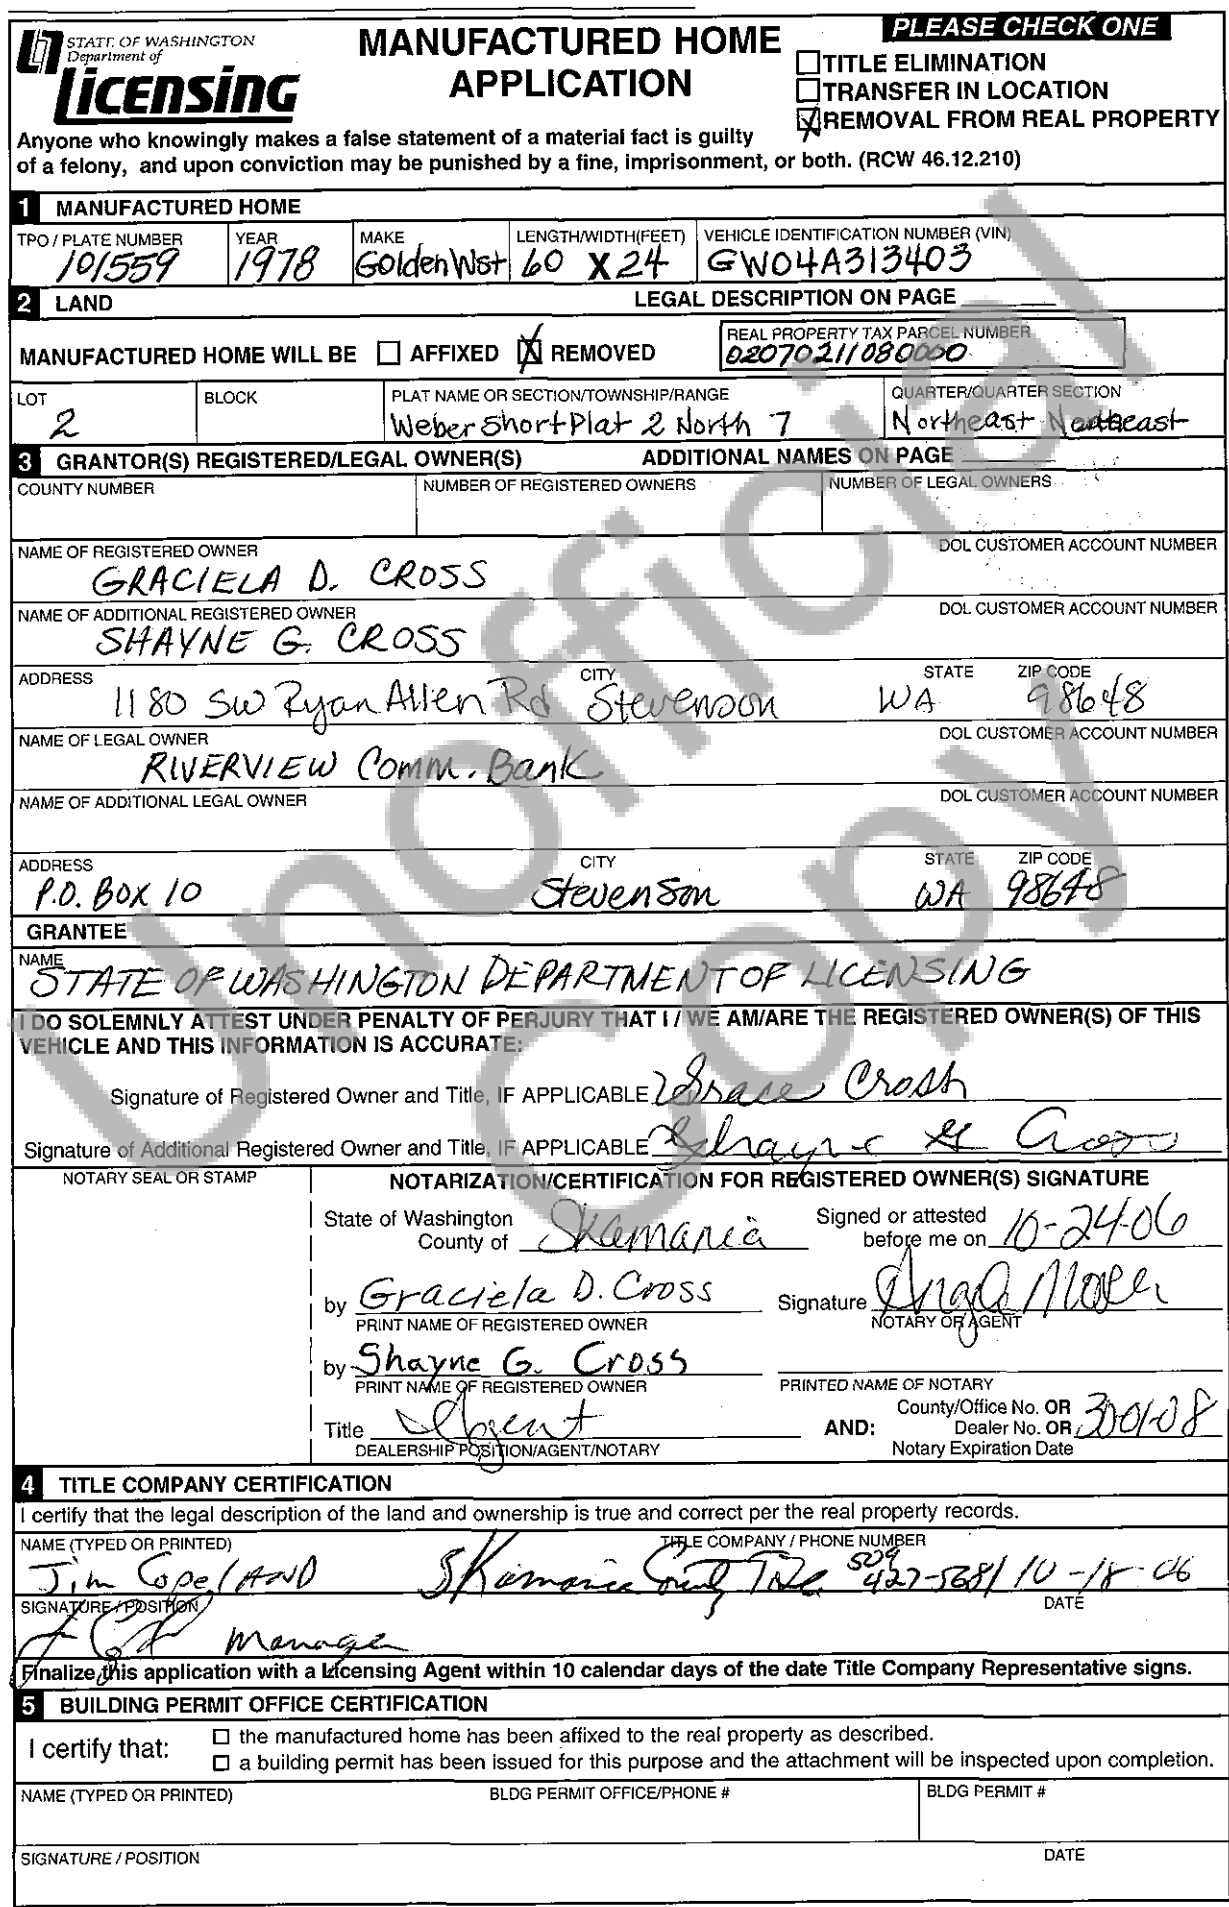 STATE OF WASHINGTON
Department of
Licensing
MANUFACTURED HOME
APPLICATION
PLEASE CHECK ONE
TITLE ELIMINATION
TRANSFER IN LOCATION
REMOVAL FROM REAL PROPERTY
Anyone who knowingly makes a false statement of a material fact is guilty
of a felony, and upon conviction may be punished by a fine, imprisonment, or both. (RCW 46.12.210)
1 MANUFACTURED HOME
TPO / PLATE NUMBER YEAR MAKE LENGTH/WIDTH(FEET) VEHICLE IDENTIFICATION NUMBER (VIN)
101559 1978 Golden Wst 60 X 24 GW04A313403
2 LAND LEGAL DESCRIPTION ON PAGE
MANUFACTURED HOME WILL BE AFFIXED REMOVED
REAL PROPERTY TAX PARCEL NUMBER
02070211080000
LOT BLOCK PLAT NAME OR SECTION/TOWNSHIP/RANGE QUARTER/QUARTER SECTION
2 Weber Short Plat 2 North 7 Northeast Northeast
3 GRANTOR(S) REGISTERED/LEGAL OWNER(S) ADDITIONAL NAMES ON PAGE
COUNTY NUMBER NUMBER OF REGISTERED OWNERS NUMBER OF LEGAL OWNERS
NAME OF REGISTERED OWNER DOL CUSTOMER ACCOUNT NUMBER
GRACIELA D. CROSS
NAME OF ADDITIONAL REGISTERED OWNER DOL CUSTOMER ACCOUNT NUMBER
SHAYNE G. CROSS
ADDRESS CITY STATE ZIP CODE
1180 SW Ryan Allen Rd Stevenson WA 98648
NAME OF LEGAL OWNER DOL CUSTOMER ACCOUNT NUMBER
RIVERVIEW Comm. Bank
NAME OF ADDITIONAL LEGAL OWNER DOL CUSTOMER ACCOUNT NUMBER
ADDRESS CITY STATE ZIP CODE
P.O. Box 10 Stevenson WA 98648
GRANTEE
NAME
STATE OF WASHINGTON DEPARTMENT OF LICENSING
I DO SOLEMNLY ATTEST UNDER PENALTY OF PERJURY THAT I / WE AM/ARE THE REGISTERED OWNER(S) OF THIS
VEHICLE AND THIS INFORMATION IS ACCURATE:
Signature of Registered Owner and Title, IF APPLICABLE Cross
Signature of Additional Registered Owner and Title, IF APPLICABLE Shayne G Cross
NOTARY SEAL OR STAMP NOTARIZATION/CERTIFICATION FOR REGISTERED OWNER(S) SIGNATURE
State of Washington
County of Skamania
Signed or attested
before me on 10-24-06
by Graciela D. Cross Signature
PRINT NAME OF REGISTERED OWNER NOTARY OR AGENT
by Shayne G. Cross
PRINT NAME OF REGISTERED OWNER PRINTED NAME OF NOTARY
Title Agent
DEALERSHIP POSITION/AGENT/NOTARY
AND: County/Office No. OR
Dealer No. OR
Notary Expiration Date
4 TITLE COMPANY CERTIFICATION
I certify that the legal description of the land and ownership is true and correct per the real property records.
NAME (TYPED OR PRINTED) TITLE COMPANY / PHONE NUMBER
Jim Copeland Skamania County Title 509 427-5681 10-18-06
SIGNATURE / POSITION DATE
Manager
Finalize this application with a Licensing Agent within 10 calendar days of the date Title Company Representative signs.
5 BUILDING PERMIT OFFICE CERTIFICATION
I certify that:
the manufactured home has been affixed to the real property as described.
a building permit has been issued for this purpose and the attachment will be inspected upon completion.
NAME (TYPED OR PRINTED) BLDG PERMIT OFFICE/PHONE # BLDG PERMIT #
SIGNATURE / POSITION DATE
Unofficial
Copy